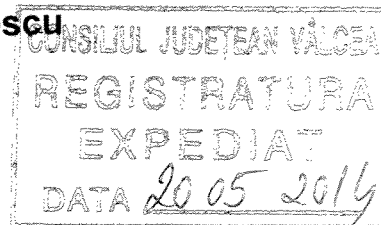 scu
CONSILIUL JUDEȚEAN VÂLCEA
REGISTRATURA
EXPEDIAT
DATA 20 05 2014